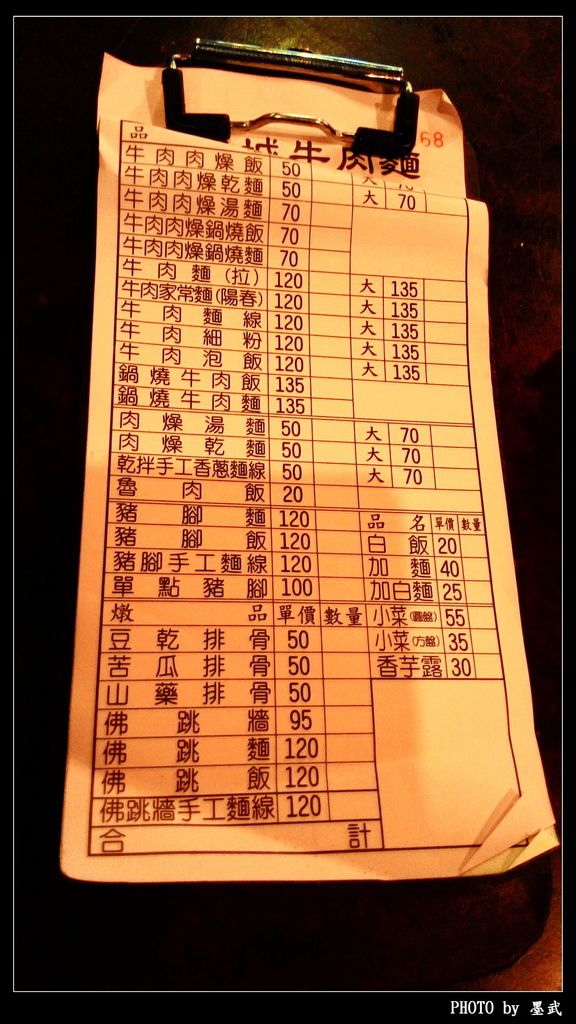 68
城牛肉麵
品
牛肉肉燥飯 50 大 70
牛肉肉燥乾麵 50 大 70
牛肉肉燥湯麵 70
牛肉肉燥鍋燒飯 70
牛肉肉燥鍋燒麵 70
牛肉麵(拉) 120 大 135
牛肉家常麵(陽春) 120 大 135
牛肉麵線 120 大 135
牛肉細粉 120 大 135
牛肉泡飯 120 大 135
鍋燒牛肉飯 135
鍋燒牛肉麵 135
肉燥湯麵 50 大 70
肉燥乾麵 50 大 70
乾拌手工香蔥麵線 50 大 70
魯肉飯 20
豬腳麵 120 品名 單價 數量
豬腳飯 120 白飯 20
豬腳手工麵線 120 加麵 40
單點豬腳 100 加白麵 25
燉品 單價 數量 小菜(圓盤) 55
豆乾排骨 50 小菜(方盤) 35
苦瓜排骨 50 香芋露 30
山藥排骨 50
佛跳牆 95
佛跳麵 120
佛跳飯 120
佛跳牆手工麵線 120
合計
PHOTO by 墨武